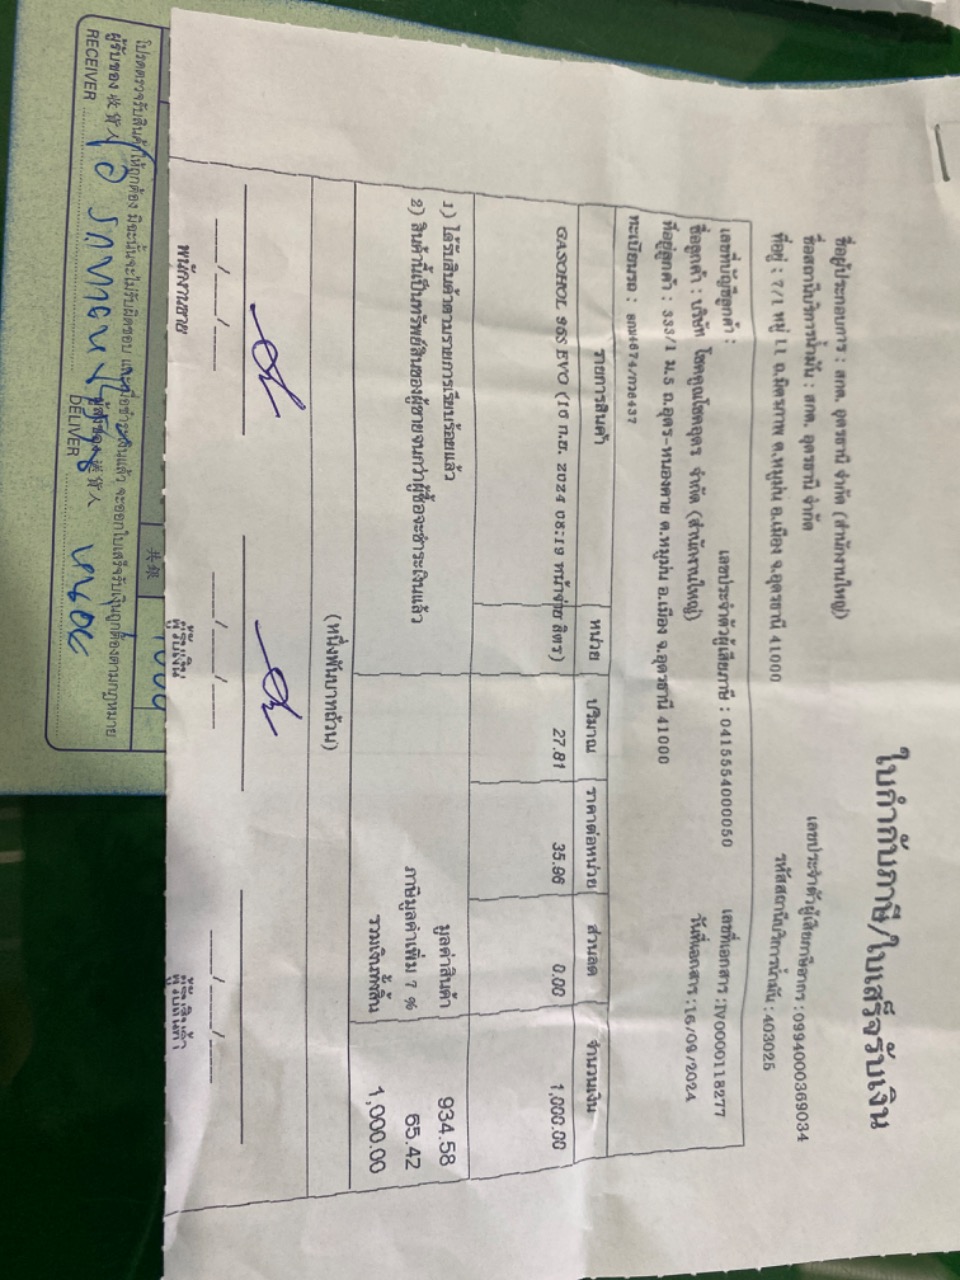 ใบกำกับภาษี/ใบเสร็จรับเงิน
ชื่อผู้ประกอบการ : สกต. อุดรธานี จำกัด (สำนักงานใหญ่)
เลขประจำตัวผู้เสียภาษีอากร : 0994000369034
ชื่อสถานีบริการน้ำมัน : สกต. อุดรธานี จำกัด
รหัสสถานีบริการน้ำมัน : 403025
ที่อยู่ : 7/1 หมู่ 11 ถ.มิตรภาพ ต.หมูม่น อ.เมือง จ.อุดรธานี 41000
เลขที่บัญชีลูกค้า : เลขประจำตัวผู้เสียภาษี : 0415554000050 เลขที่เอกสาร :IV0000118277
ชื่อลูกค้า : บริษัท โชคคูณโชคอุดร จำกัด (สำนักงานใหญ่) วันที่เอกสาร :16/09/2024
ที่อยู่ลูกค้า : 333/1 ม.5 ถ.อุดร-หนองคาย ต.หมูม่น อ.เมือง จ.อุดรธานี 41000
ทะเบียนรถ :
รายการสินค้า หน่วย ปริมาณ ราคาต่อหน่วย ส่วนลด จำนวนเงิน
GASOHOL 95S EVO (16 ก.ย. 2024 08:19 หน้าจ่าย ลิตร) 27.81 35.96 0.00 1,000.00
1) ได้รับสินค้าตามรายการเรียบร้อยแล้ว มูลค่าสินค้า 934.58
2) สินค้านี้เป็นทรัพย์สินของผู้ขายจนกว่าผู้ซื้อจะชำระเงินแล้ว ภาษีมูลค่าเพิ่ม 7 % 65.42
รวมเงินทั้งสิ้น 1,000.00
(หนึ่งพันบาทถ้วน)
___/___/___ ___/___/___ ___/___/___
พนักงานขาย ผู้รับเงิน ผู้รับสินค้า
โปรดตรวจรับสินค้าให้ถูกต้อง มิฉะนั้นจะไม่รับผิดชอบ และเมื่อชำระเงินแล้ว จะออกใบเสร็จรับเงินถูกต้องตามกฎหมาย
ผู้รับของ 收貨人 ผู้ส่งของ 送貨人
RECEIVER DELIVER